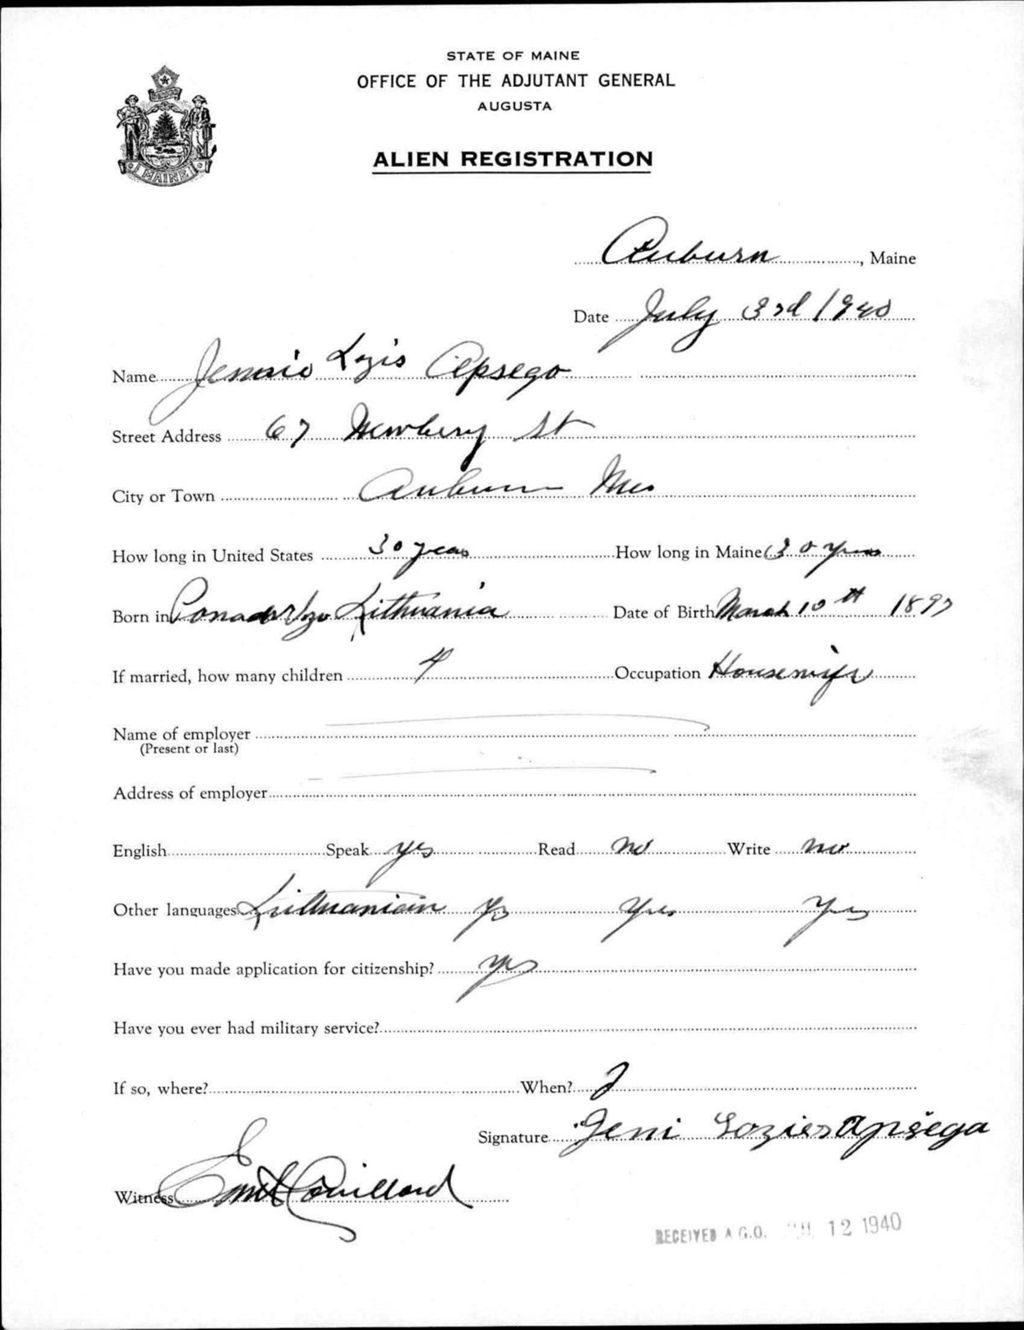 STATE OF MAINE
OFFICE OF THE ADJUTANT GENERAL
AUGUSTA
MAINE
ALIEN REGISTRATION
Auburn, Maine
Date July 3rd 1940
Name Jennie Lozis Apsego
Street Address 67 Newbery St
City or Town Auburn Me
How long in United States 30 years How long in Maine 30 years
Born in Lithuania Date of Birth March 10th 1897
If married, how many children 4 Occupation Housewife
Name of employer
(Present or last)
Address of employer
English Speak yes Read no Write no
Other languages Lithuanian yes yes yes
Have you made application for citizenship? yes
Have you ever had military service?
If so, where? When?
Signature Jeni Lozies Apsega
Witness Couillard
RECEIVED A.G.O. 12 1940